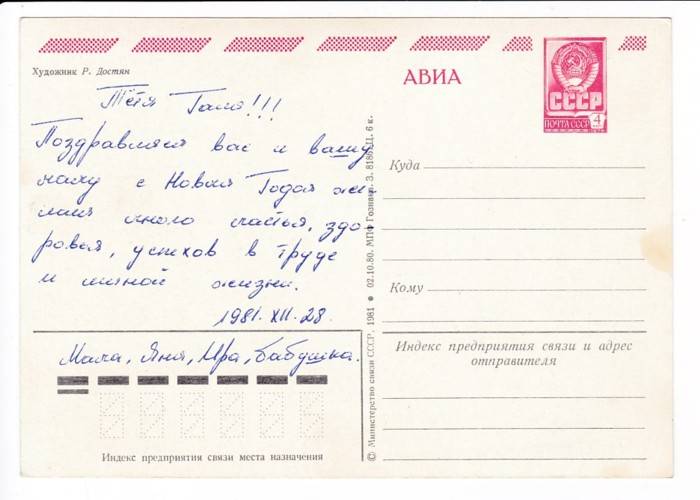 Художник Р. Достян
Тётя Галя!!!
Поздравляем вас и вашу
маму с Новым Годом же-
лаем много счастья, здо-
ровья, успехов в труде
и личной жизни.
1981.XII.28.
Мама, Яна, Ира, бабушка.
Индекс предприятия связи места назначения
© Министерство связи СССР. 1981 ● 02.10.80. МПФ Гознака. З. 8186. Ц. 6 к.
АВИА
СССР
ПОЧТА СССР 4
Куда
Кому
Индекс предприятия связи и адрес
отправителя